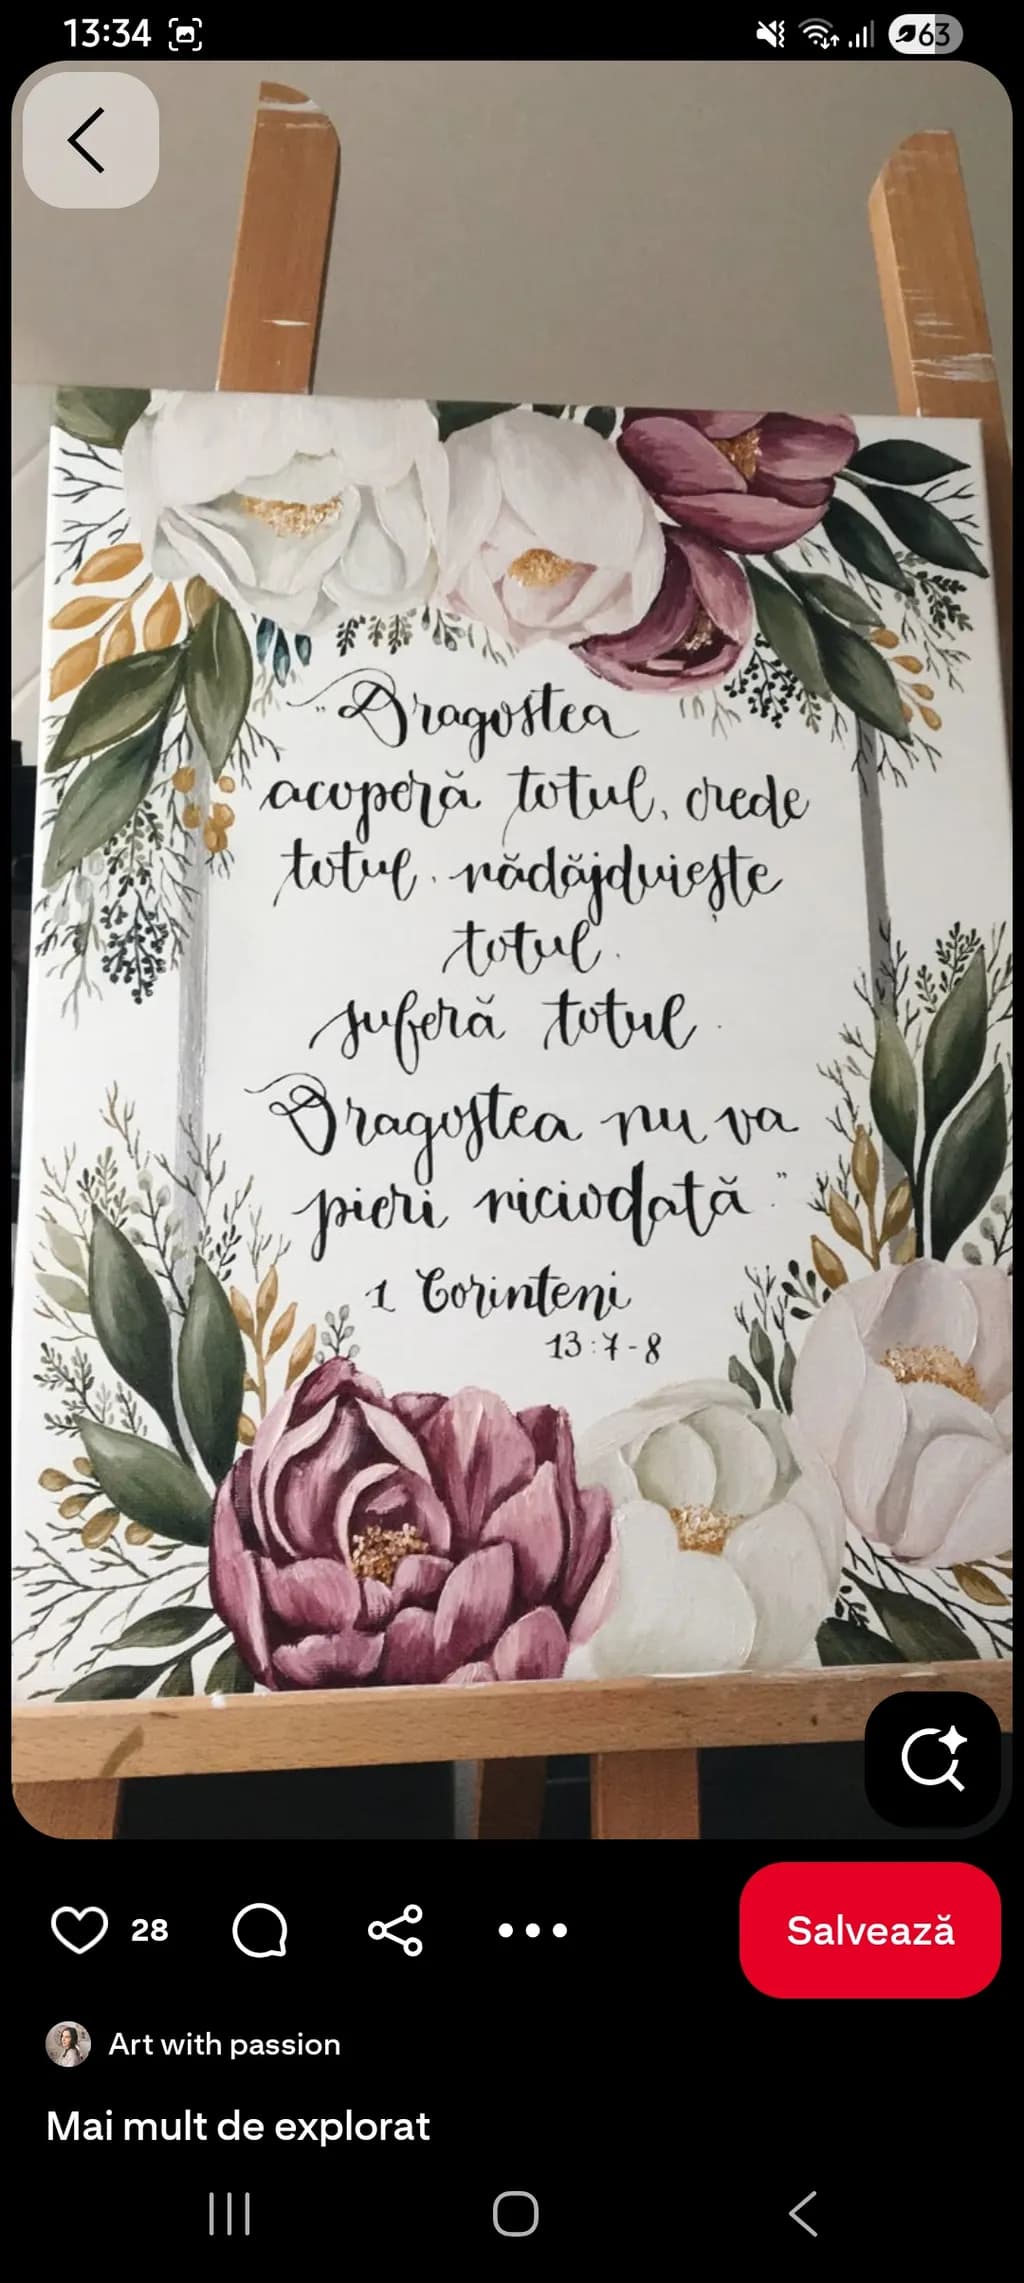 13:34
63
„Dragostea
acoperă totul, crede
totul, nădăjduiește
totul,
suferă totul.
Dragostea nu va
pieri niciodată."
1 Corinteni
13:7-8
28
Salvează
Art with passion
Mai mult de explorat